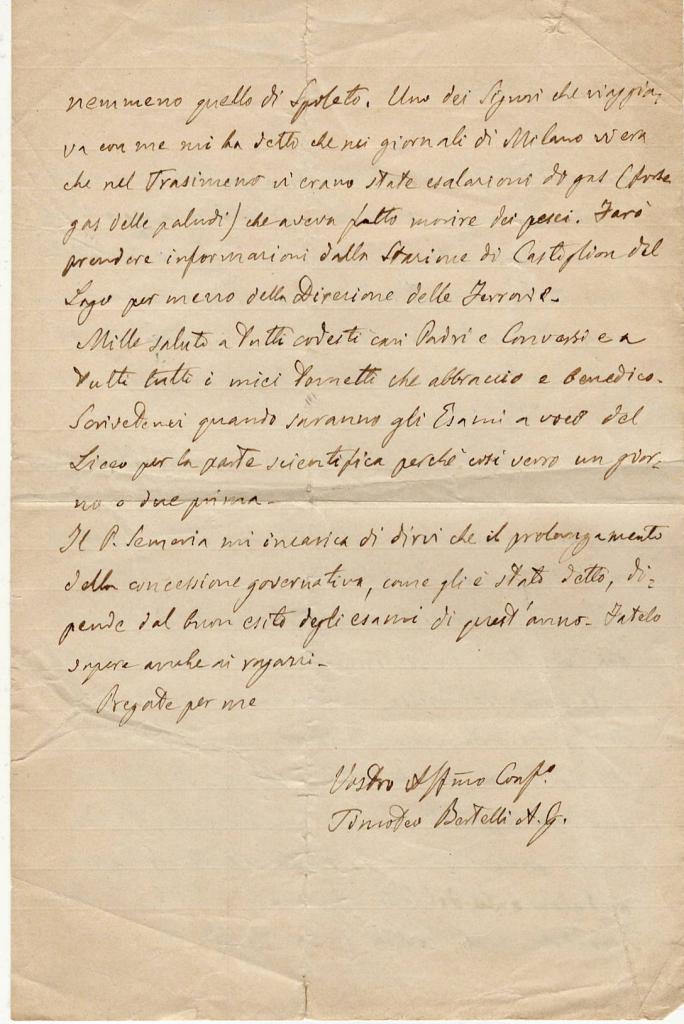 nemmeno quello di Spoleto. Uno dei Signori che viaggia-
va con me mi ha detto che nei giornali di Milano vi era
che nel Trasimeno vi erano state esalazioni di gas (forse
gas delle paludi) che aveva fatto morire dei pesci. Farò
prendere informazioni dalla Stazione di Castiglion del
Lago per mezzo della Direzione delle Ferrovie.
Mille saluti a tutti codesti cari Padri e Conversi e a
tutti tutti i miei che abbraccio e benedico.
Scrivetemi quando saranno gli Esami a voce del
Liceo per la parte scientifica perché così verrò un gior-
no o due prima.
Il P. Semeria mi incarica di dirvi che il prolungamento
della concessione governativa, come gli è stato detto, di-
pende dal buon esito degli esami di quest'anno. Fatelo
sapere anche ai ragazzi.
Pregate per me
Vostro Affmo Confo.
Timoteo Bertelli